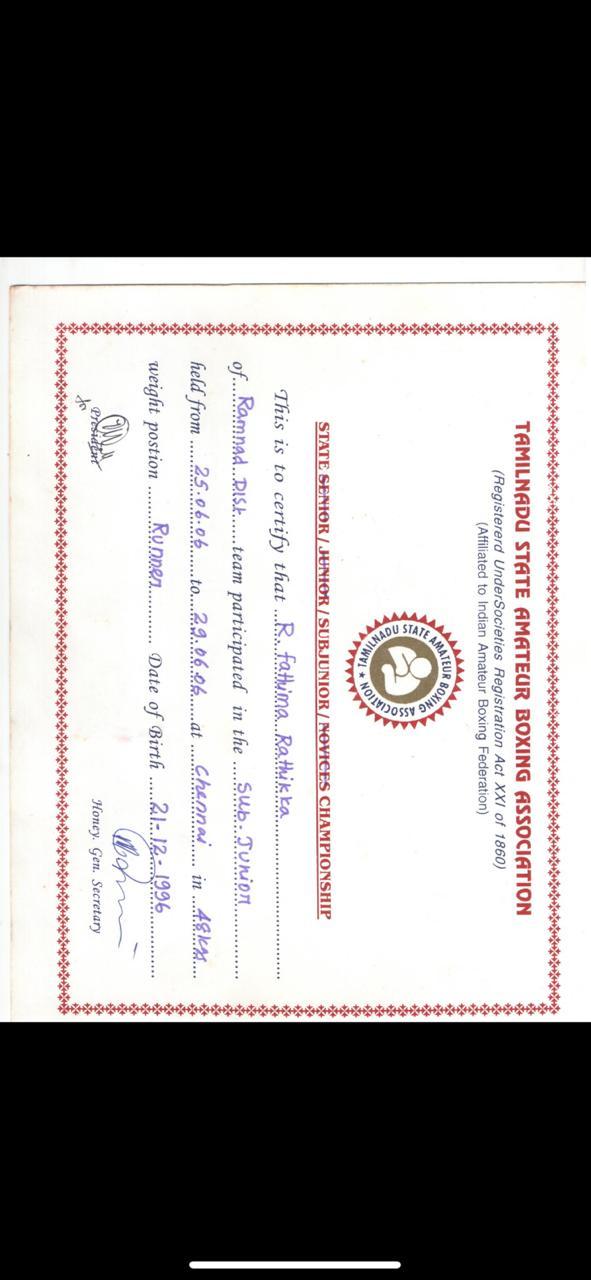 TAMILNADU STATE AMATEUR BOXING ASSOCIATION
(Registererd UnderSocieties Registration Act XXI of 1860)
(Affiliated to Indian Amateur Boxing Federation)
TAMILNADU STATE AMATEUR BOXING ASSOCIATION ★
STATE SENIOR / JUNIOR / SUBJUNIOR / NOVICES CHAMPIONSHIP
This is to certify that ...R. Fathima Rathikka...
of...Ramnad Dist...team participated in the ...Sub-Junior...
held from ...25.06.06...to...29.06.06...at ...Chennai... in ...48kgs...
weight postion ...Runner... Date of Birth ...21-12-1996...
President
Honey. Gen. Secretary